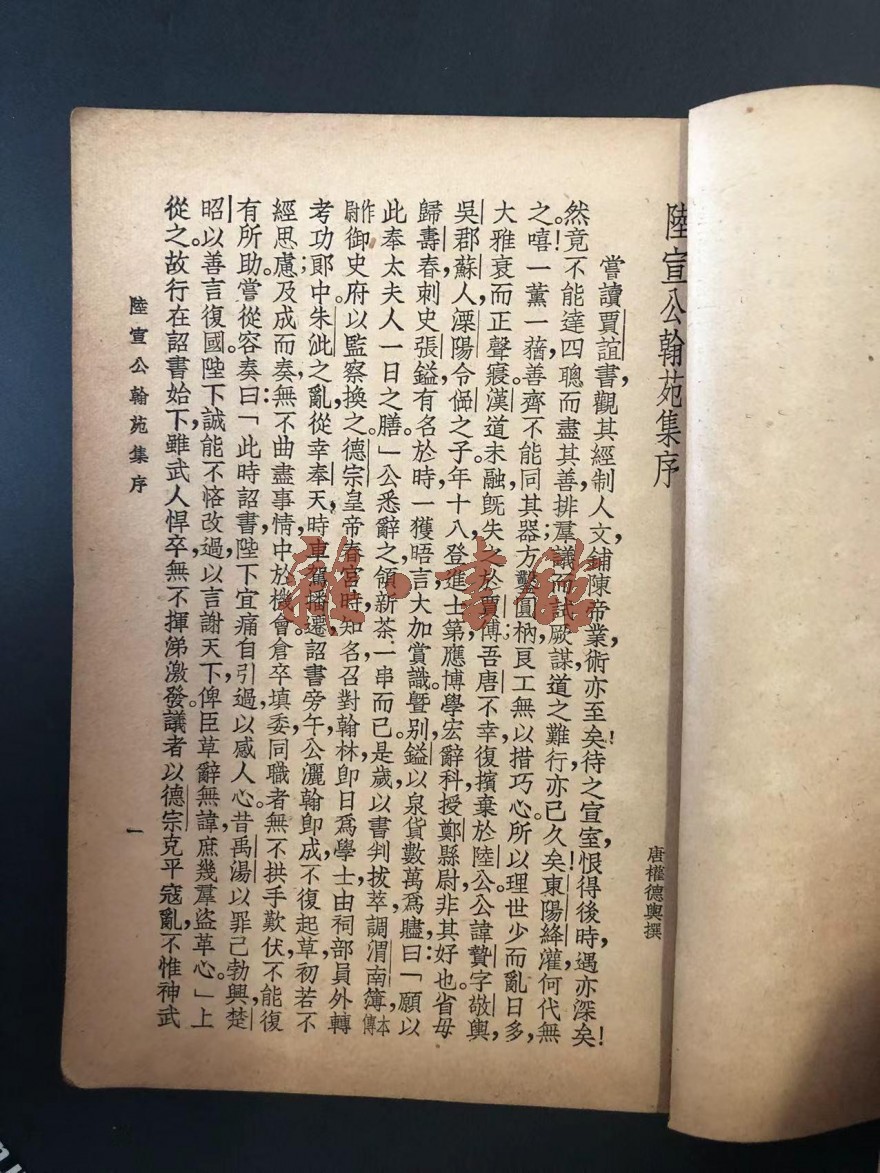 陸宣公翰苑集序
唐權德輿撰
嘗讀賈誼書，觀其經制人文，鋪陳帝業，術亦至矣！待之宣室，恨得後時，遇亦深矣！
然竟不能達四聰而盡其善，排羣議而試厥謀，道之難行，亦已久矣！東陽絳灌，何代無
之。！嘻一薰一蕕，善齊不能同其器；方鑿圓枘，良工無以措巧心。所以理世少而亂日多，
大雅衰而正聲寢。漢道未融，既失之於賈傅；吾唐不幸，復擯棄於陸公。公諱贄，字敬輿，
吳郡蘇人，溧陽令偘之子。年十八登進士第，應博學宏辭科，授鄭縣尉，非其好也。省母
歸，壽春刺史張鎰有名於時，一獲晤言，大加賞識。暨別，鎰以泉貨數萬爲贐，曰：「願以
此奉太夫人一日之膳。」公悉辭之，領新茶一串而已。是歲以書判拔萃，調渭南簿，本傳
作尉御史府以監察換之。德宗皇帝春宮時知名，召對翰林，即日爲學士，由祠部員外轉
考功郎中。朱泚之亂，從幸奉天，時車駕播遷，詔書旁午，公灑翰即成，不復起草，初若不
經思慮，及成而奏，無不曲盡事情，中於機會，倉卒填委，同職者無不拱手歎伏，不能復
有所助。嘗從容奏曰：「此時詔書，陛下宜痛自引過，以感人心。昔禹湯以罪己勃興，楚
昭以善言復國。陛下誠能不悋改過，以言謝天下，俾臣草辭無諱，庶幾羣盜革心。」上
從之。故行在詔書始下，雖武人悍卒，無不揮涕激發。議者以德宗克平寇亂，不惟神武
陸宣公翰苑集序
一
龍·書館